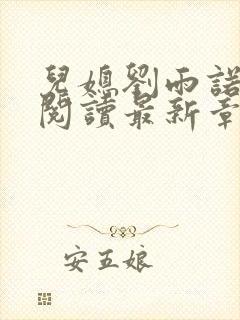 兒媳劉雨諾
閱讀最新章
安五娘